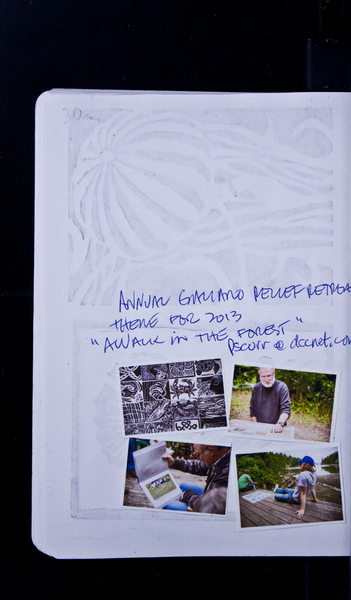 ANNUAL GALIANO RELIEF RETREA
THEME FOR 2013
"A WALK IN THE FOREST"
pscorr @ dccnet.com